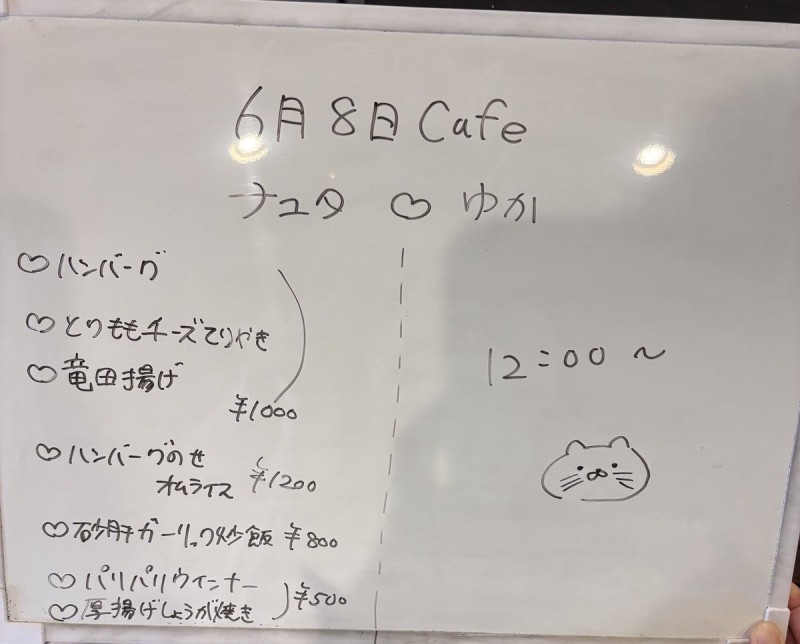 6月8日 Cafe
ナユタ ♡ ゆか
♡ ハンバーグ
♡ とりももチーズてりやき
♡ 竜田揚げ
¥1000
♡ ハンバーグのせ
オムライス ¥1200
♡ 砂肝ガーリック炒飯 ¥800
♡ パリパリウィンナー
♡ 厚揚げしょうが焼き ¥500
12:00 〜